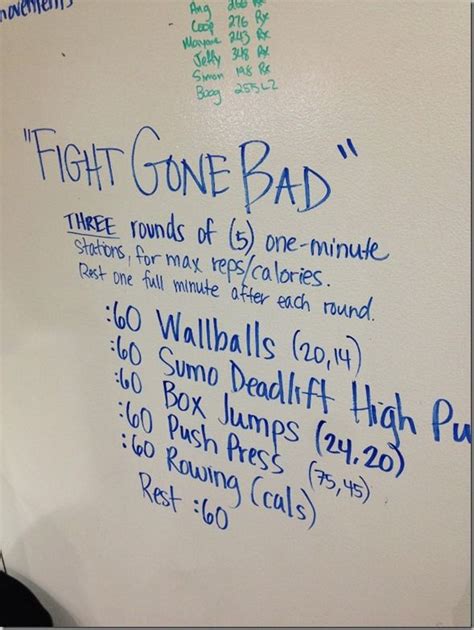 movements
Ang 266 Rx
Coop 276 Rx
Maryone 243 Rx
Jeffy 348 Rx
Simon 198 Rx
Boog 255 L2
"FIGHT GONE BAD"
THREE rounds of (5) one-minute
stations, for max reps/calories.
Rest one full minute after each round.
:60 Wallballs (20,14)
:60 Sumo Deadlift High Pu
:60 Box Jumps (24,20)
:60 Push Press (75,45)
:60 Rowing (cals)
Rest :60